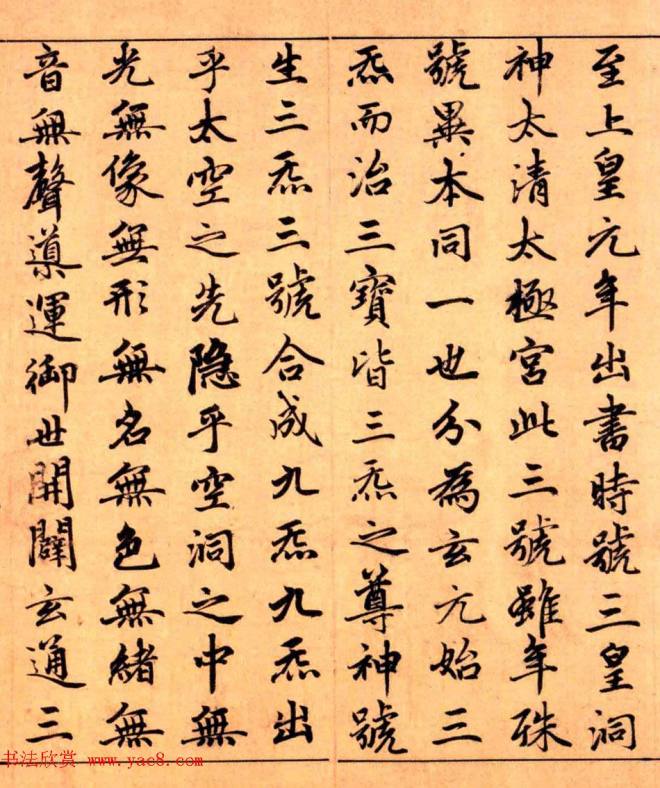 至上皇元年出書時號三皇洞
神太清太極宮此三號雖年硃
號異本同一也分為玄元始三
炁而治三寶皆三炁之尊神號
生三炁三號合成九炁九炁出
乎太空之先隱乎空洞之中無
光無像無形無名無色無緒無
音無聲導運御世開闢玄通三
书法欣赏 www.yac8.com